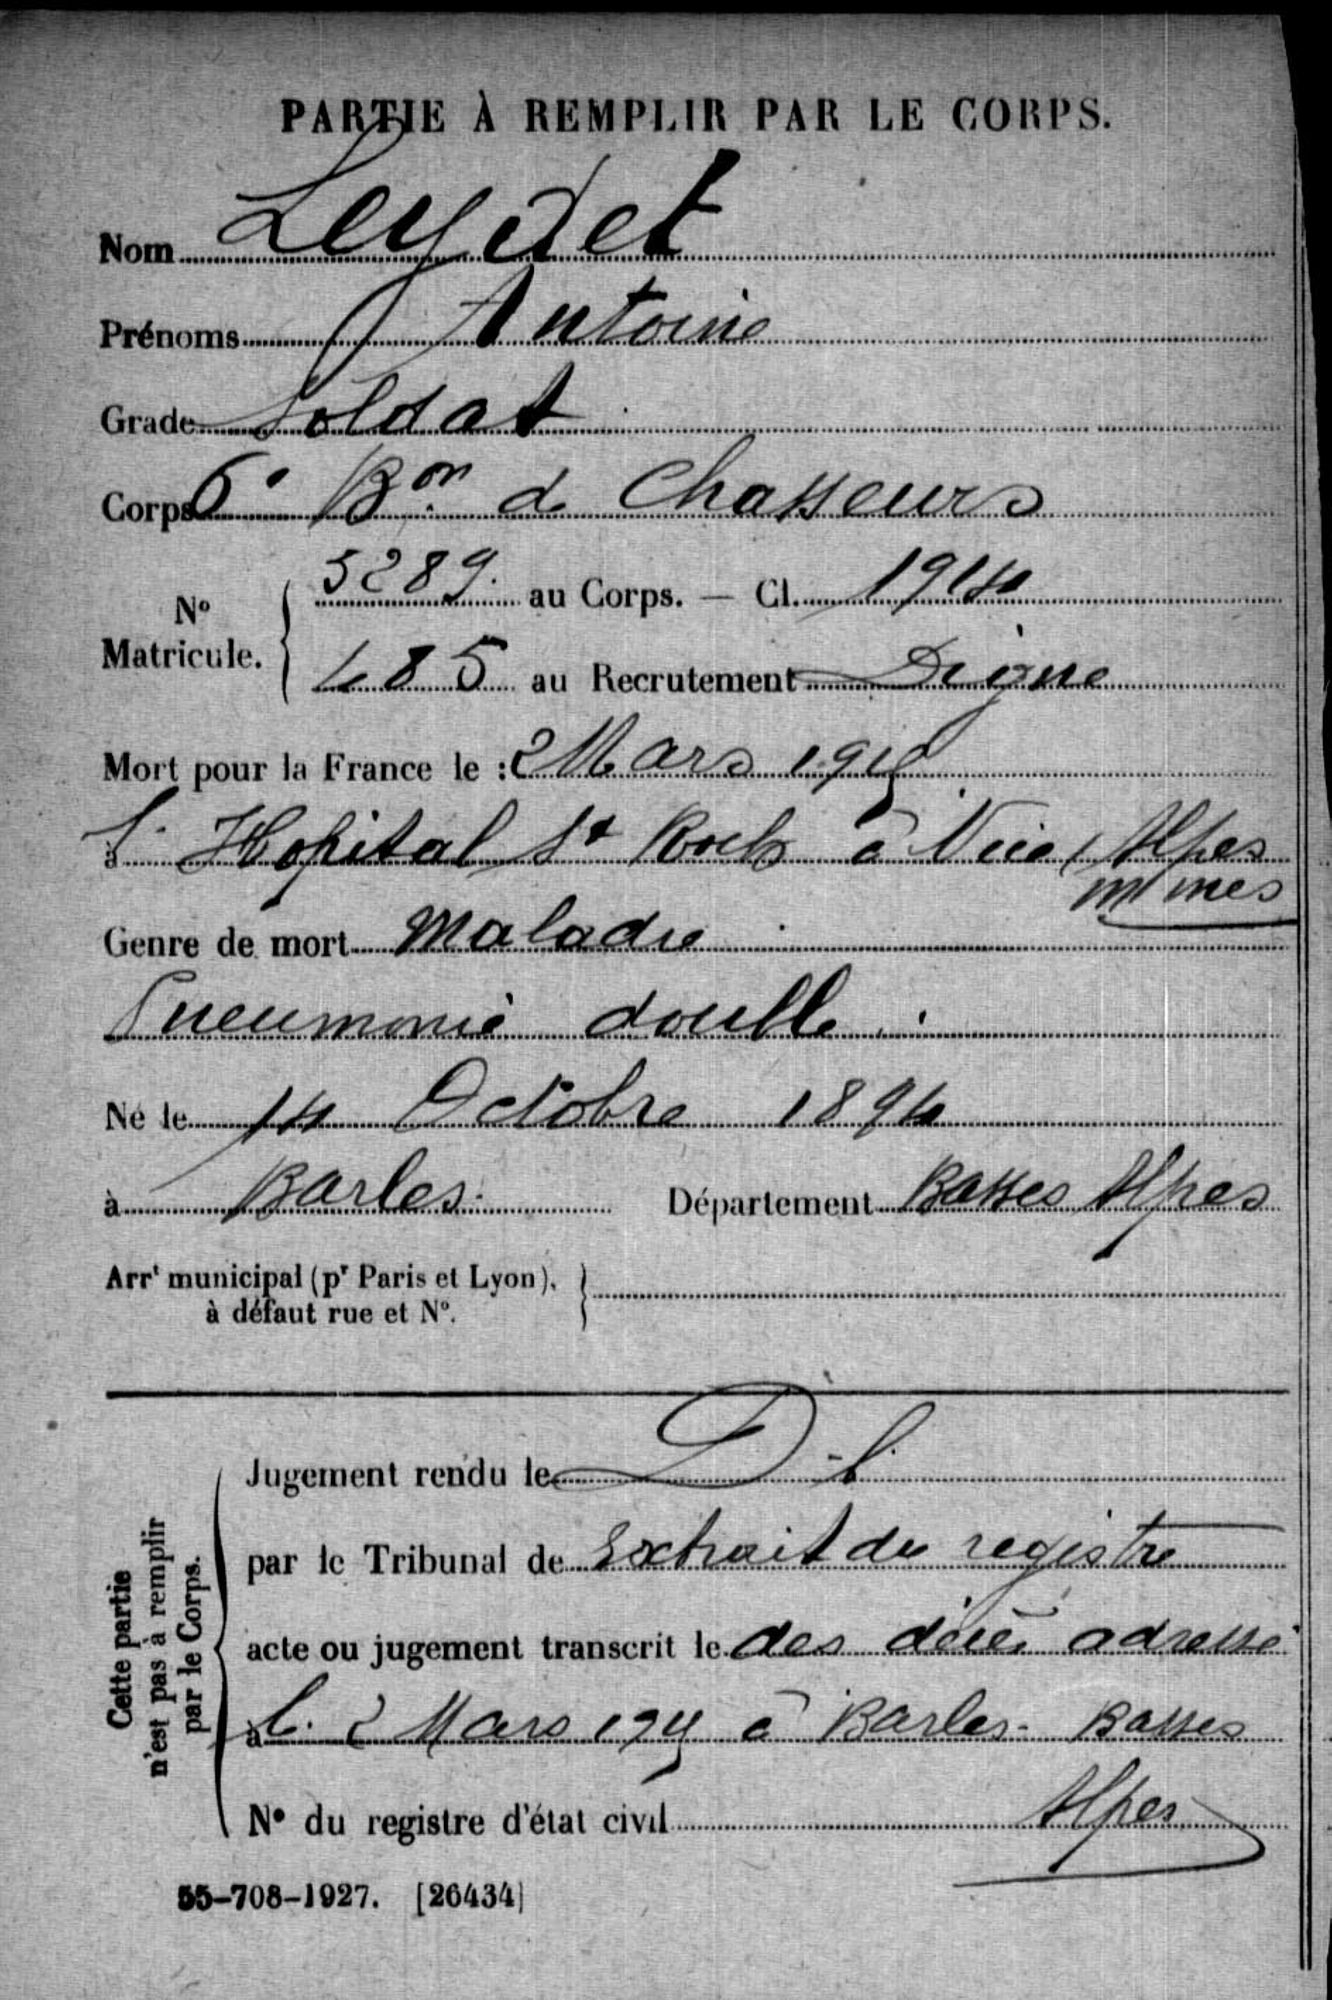 PARTIE À REMPLIR PAR LE CORPS.
Nom Leydet
Prénoms Antoine
Grade Soldat
Corps 6e Bon de Chasseurs
No Matricule. { 3289. au Corps. — Cl. 1914
485 au Recrutement Digne
Mort pour la France le : 2 Mars 1915
à l'Hopital St Roch à Nice (Alpes
mmes
Genre de mort Maladie
Pneumonie double.
Né le 14 Octobre 1894
à Barles. Département Basses Alpes
Arrt municipal (pr Paris et Lyon), }
à défaut rue et No.
Cette partie
n'est pas à remplir
par le Corps.
Jugement rendu le
par le Tribunal de Extrait du registre
acte ou jugement transcrit le des décès adressé
à l. 2 Mars 1915 à Barles - Basses
No du registre d'état civil Alpes
55-708-1927. [26434]